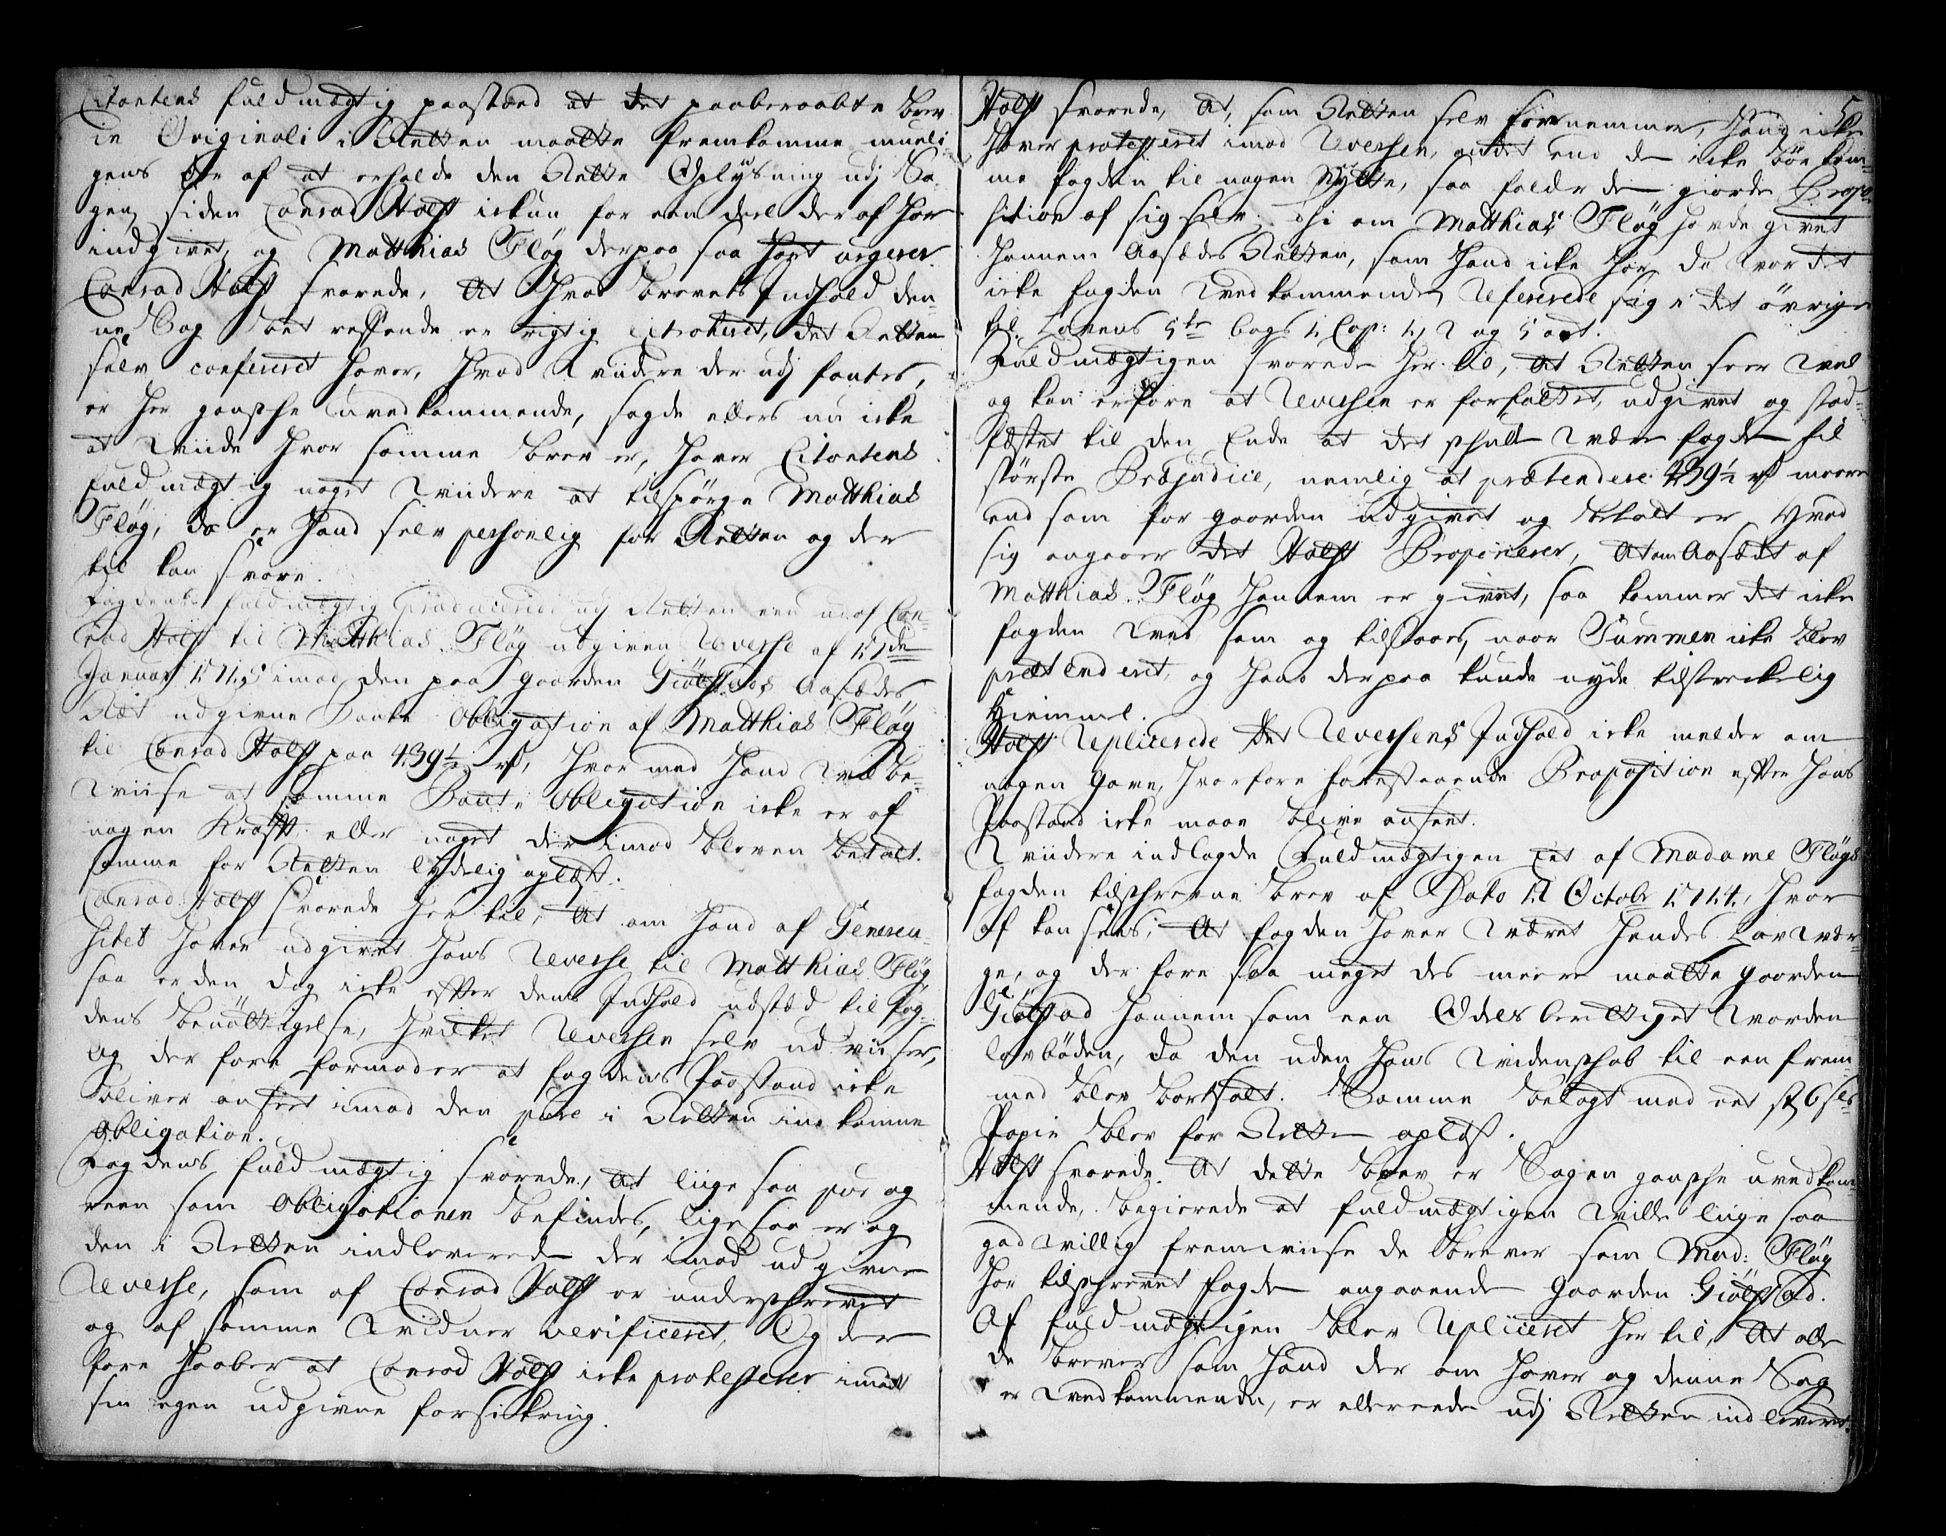 Citantens fuldmægtig paastoed at det paaberaabte brev
in Originali i Retten maatte fremkomme mueli-
gens der af at erholde den Rette Oplysning udj Sa-
gen, siden Conrad Holst ickun for een deel der af har
indgivet, og Matthias Fløg derpaa saa hart urgerer
Conrad Holst svarede, At hvis brevets Indhold den-
ne Sag kand reffende er rigtig extraheret, det Retten
selv confereret haver, hvad Widere der udj findes,
er her gandske uvedkommende, sagde ellers nu icke
at Wiide hvor samme brev er, haver Citantens
fuldmægtig noget Widere at tilspørge Matthias
Fløg, da er hand selv personlig for Retten og der
til kan svare.
Fogdens fuldmægtig producerede udj Retten een ud af Con-
rad Holst til Matthias Fløg udgiven Reverse af 11de
Januar 1715 imod den paa gaarden Giølstads Aasædes
Ræt udgivne Pante Obligation af Matthias Fløg
til Conrad Holst paa 439½ rd, hvor med hand Vil be-
Wiise at samme Pante Obligation icke er af
nogen Krafft eller noget der imod bleven betalt.
samme for Retten lydelig oplæst.
Conrad Holst svarede her til, At om hand af Genereu-
sitet haver udgivet hans Reverse til Matthias Fløg
saa er den dog icke efter dens Indhold udstæd til fog-
dens benøttigelse, hvilket Reversen selv udviiser,
og der fore formoder at fogdens Paastand icke
bliver anseet imod den pure i Retten ind komne
Obligation.
Fogdens fuldmægtig svarede, At liige saa pur og
reen som Obligationen befindes, lige saa er og
den i Retten indleverede der imod udgivne
Reverse, som af Conrad Holst er underschrevet
og af samme Widner verificeret, Og der
fore haaber at Conrad Holst icke protesterer imod
sin egen udgivne forsikring.
Holst svarede, At, som Retten selv fornemmer, hand icke
haver protesteret imod Reversen, andet end de icke bør kom-
me fogden til nogen Nytte, saa falder de giorde Propo-
sition af sig selv, thi om Matthias Fløg hafde givet
hannem Aasædes Retten, som hand icke har, da Var det
icke fogden Vedkommende, Refererede sig i det øvrige
til Lovens 5te bogs 1. Cap: 1, 2 og 5 art.
Fuldmægtigen svarede her til, At Retten seer Vel
og kan erfare at Reversen er forfattet, udgivet og stad-
fæstet til den Ende at det schulle Være fogden til
største Præjudice, nemlig at prætendere 439½ rd meere
end som for gaarden udgivet og betalt er, Hvad
sig angaaer det Holst Proponerer, At om Aasædet af
Matthias Fløg hannem er givet, saa kommer det icke
fogden Ved som og tilstaaes, naar Summen icke blev
prætenderet, og hand derpaa kunde nyde tilstreckelig
Hiemmel.
Holst Replicerede det Reversens Indhold icke melder om
nogen gave, hvorfore forestaaende Proposition efter hans
Paastand icke maae blive anseet.
Widere indlagde Fuldmægtigen et af Madame Fløgs
fogden tilschrevne brev af Dato 12 Octobr 1714, hvor
af kan sees, At fogden haver Været hendes LavVær-
ge, og der fore saa meget des meere maatte gaarden
Giølstad hannem som een Odelsberettiget Vorden
lovbøden, da den uden hans Videnschab til een frem-
med blev bortsolt. Samme belagt med eet st. 6 sl
Papir blev for Retten oplæst.
Holst svarede At dette brev er Sagen gansche uvedkom-
mende, begierede at fuldmægtigen Ville liige saa
god Villig fremviise de brever som Mad: Fløg
har tilschrevet fogden angaaende gaarden Giølstad.
Af fuldmægtigen blev Repliceret her til, At alle
de brever som hand der om haver og denne Sag
er Vedkommende, er allereede udj Retten indleveret.